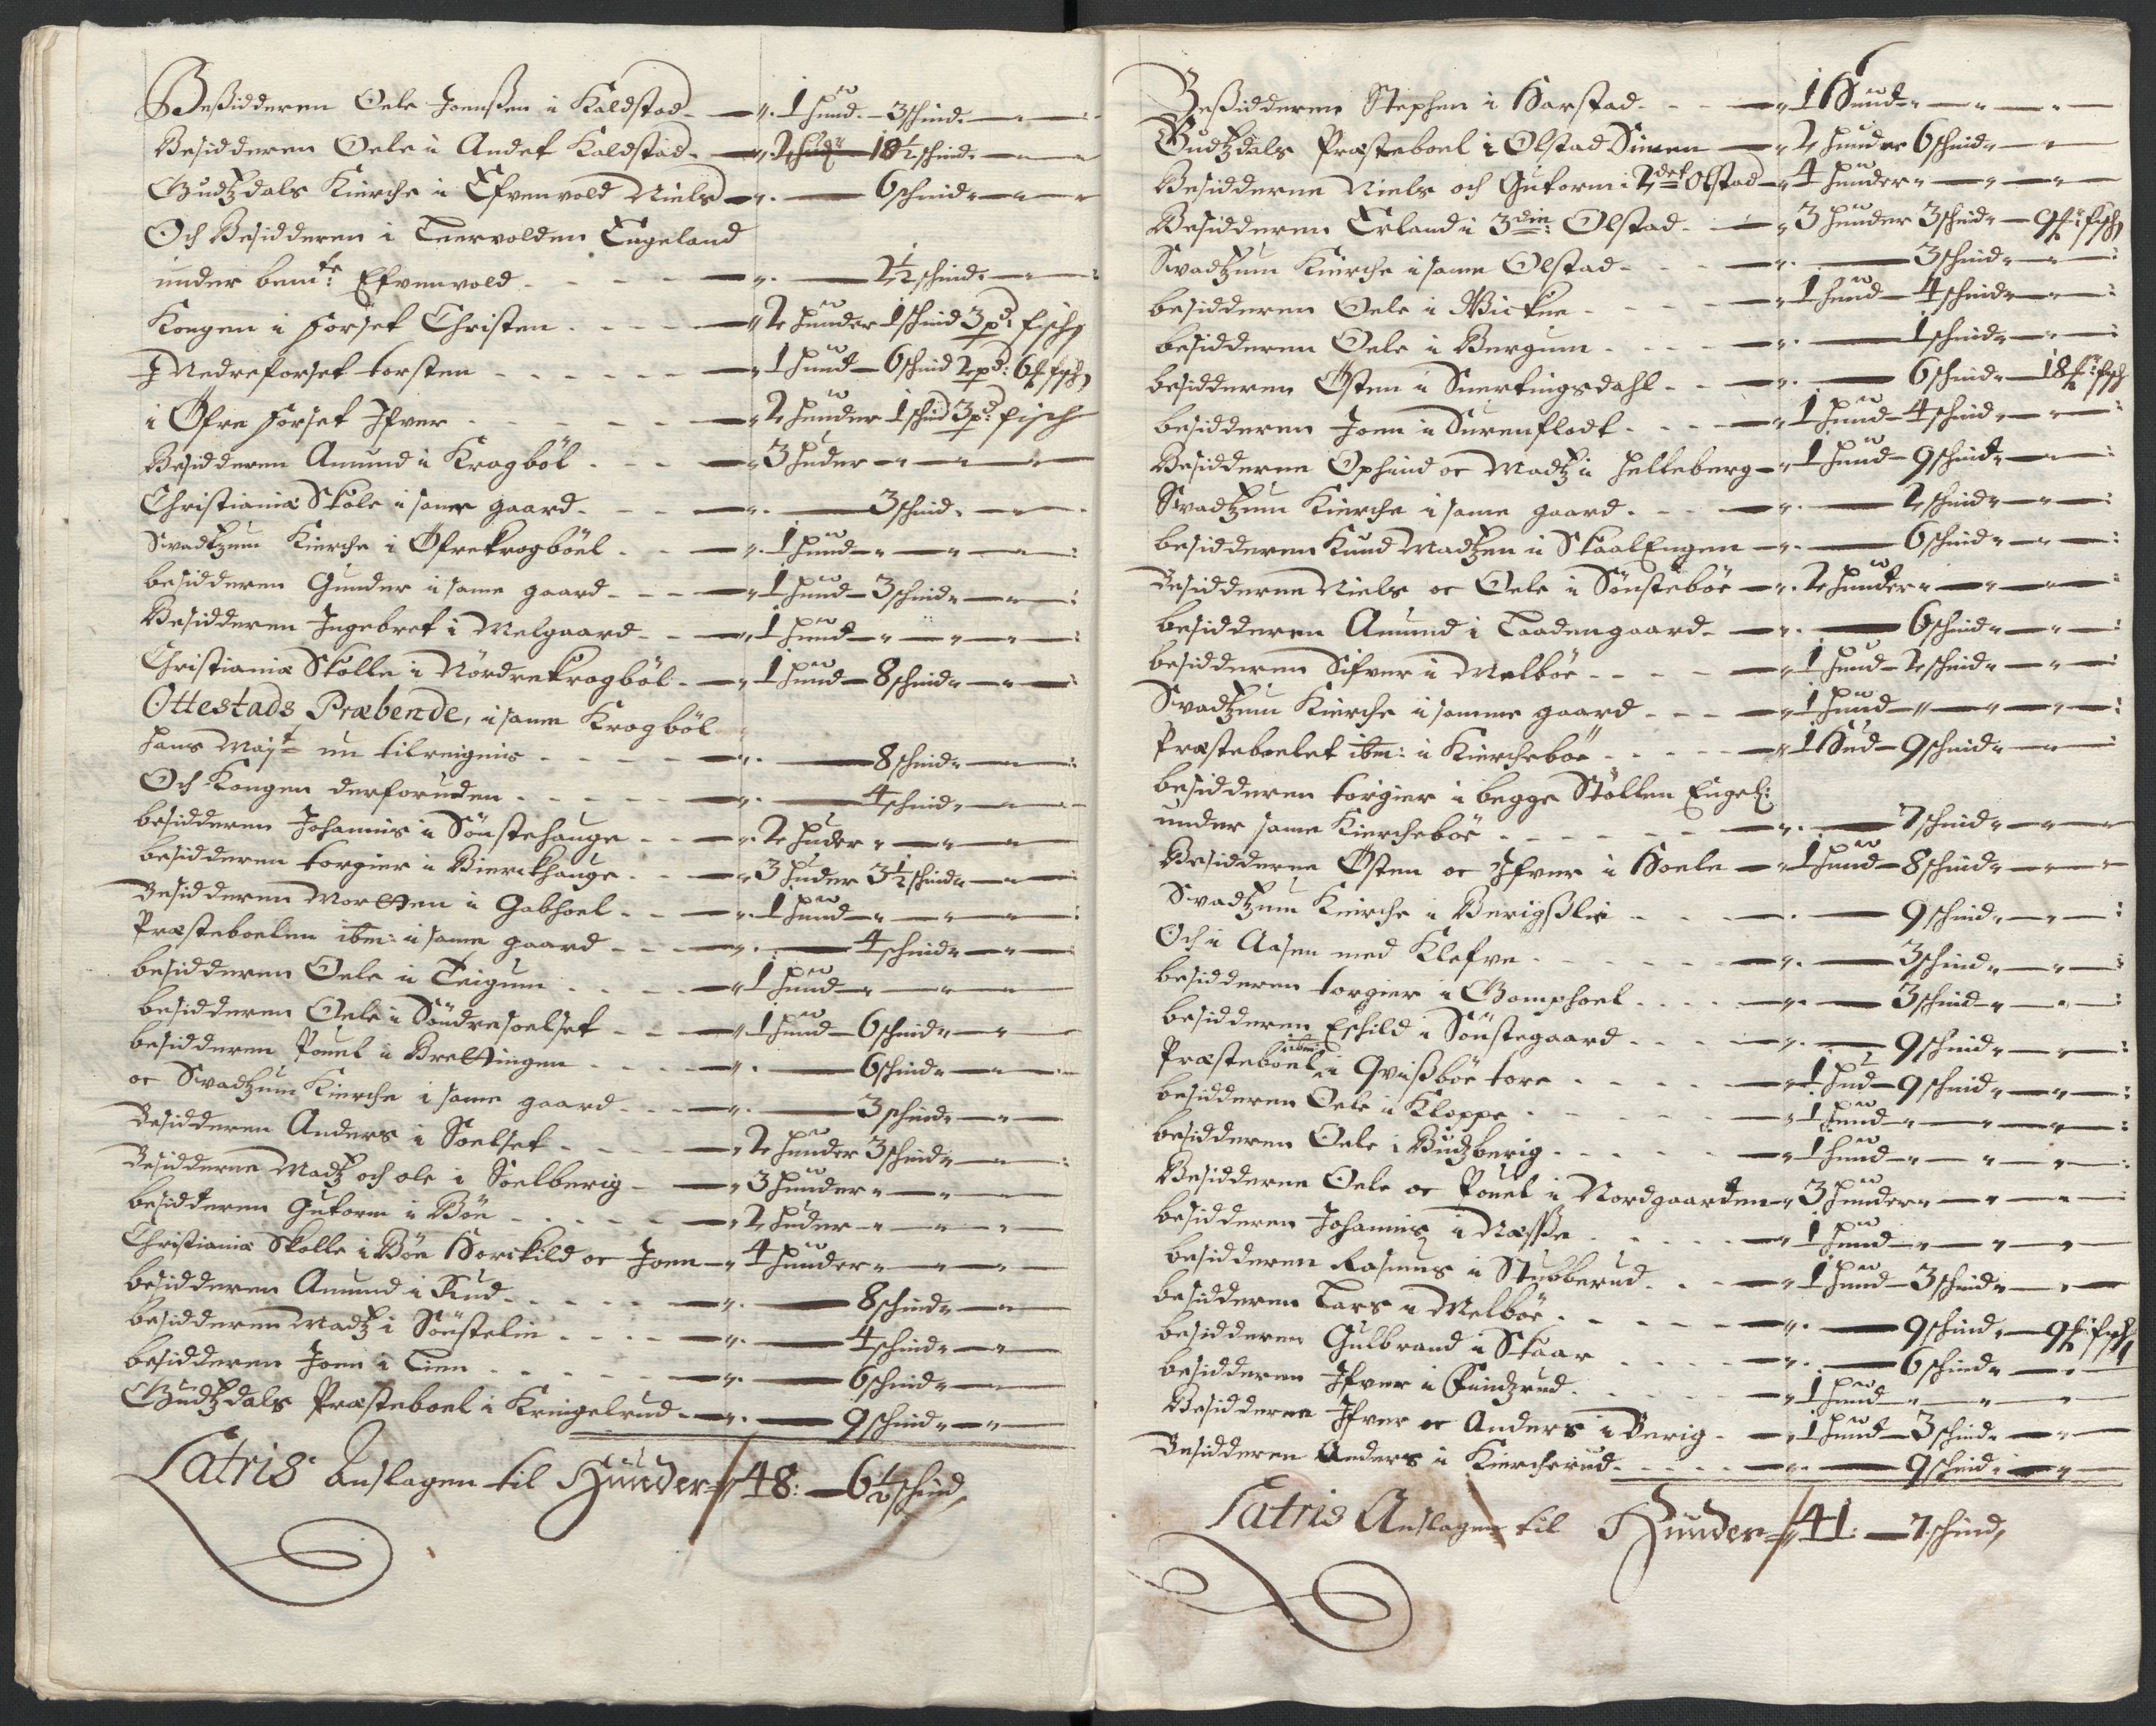 Beßidderen Oele Joenßen i Kaldstad - 1 hund - 3 schind
Besidderen Oele i Andet Kaldstad - 10½ schind
Gudtzdals Kierche i Efvenvold Niels - 6 schind
Och Besidderen i Teervolden Engeland
under bemte: Efvenvold - 2½ schind
Kongen i Forset Christen - 2 hunder 1 schind 3 pd: fisch
I Nedreforset torsten - 1 hund - 6 schind 2 pd: 6 fisch
i Øfre Forset Ifver - 2 hunder 1 schind 3 pd: fisch
Besidderen Amund i Kragböl - 3 huder
Christianiæ Skole i same gaard - 3 schind
Svadtzum Kierche i Øfrekrogböel - 1 hund
besidderen Gunder i same gaard - 1 hund - 3 schind
Besidderen Ingebret i Melgaard - 1 hund
Christianiæ Skolle i Nördrekragböl - 1 hund - 8 schind
Ottestads Præbende, i same Kragböl
hans Mayt nu tilreignis - 8 schind
Och Kongen derforuden - 4 schind
besidderen Johannis i Sönstehauge - 2 huder
besidderen torgier i Bierckhauge - 3 huder 3½ schind
Besidderen Mortten i Gabhoel - 1 hund
Præsteboelen ibm: i same gaard - 4 schind
besidderen Oele i Teigum - 1 hund
besidderen Oele i Söndresoelset - 1 hund - 6 schind
besidderen Pouel i Brettingen - 6 schind
oc Svadtzum Kierche i same gaard - 3 schind
Besidderen Anders i Soelset - 2 hunder 3 schind
Besidderne Madtz och ole i Soelberig - 3 hunder
besidderen Gutorm i Böe - 2 huder
Christianiæ Skolle i Böe Torckild oc Joen - 4 hunder
besidderen Amund i Rud - 8 schind
besidderen Madtz i Sönstelie - 4 schind
besidderen Joen i Lien - 6 schind
Gudtzdals Præsteboel i Kringelrud - 9 schind
Latris Anslagen til Hunder 48: - 6½ schind,
6
Beßidderen Stephen i Harstad - 1 Hund
Gudtzdals Præsteboel i Olstad Simen - 2 hunder 6 schind
Besidderne Niels och Gutorm i 2det Olstad - 4 hunder
Besidderen Erland i 3die: Olstad - 3 hunder 3 schind - 9 fisch
Svadtzum Kierche i same Olstad - 3 schind
besidderen Oele i Wickne - 1 hund - 4 schind
besidderen Oele i Bergum - 1 schind
besidderen Østen i Snertingsdahl - 6 schind - 18 fisch
besidderen Joen i Surenflodt - 1 hund - 4 schind
Besidderne Ophind oc Madtz i Helleberg - 1 hund - 9 schind
Svadtzum Kierche i same gaard - 2 schind
besidderen Knud Madtzen i SkaalEngen - 6 schind
Besidderne Niels oc Oele i Sönsteböe - 2 hunder
besidderen Amund i Laadengaard - 6 schind
besidderen Sifver i Melböe - 1 hund - 2 schind
Svadtzum Kierche i samme gaard - 1 hund
Præsteboelet ibm: i Kiercheböe - 1 Hud - 9 schind
besidderen torgier i begge Stöllen Engel:
under same Kiercheböe - 7 schind
Besidderne Østen oc Ifver i Hoele - 1 hund - 8 schind
Svadtzum Kierche i Berigßlie - 9 schind
Och i Aasen med Klefve - 3 schind
besidderen torgier i Gomphoel - 3 schind
besidderen Eschild i Sönstegaard - 9 schind
Præsteboel ibm: i Qvißböe tore - 1 hud - 9 schind
besidderen Oele i Kloppe - 1 hund
besidderen Oele i Budtzberig - 1 hund
Besidderne Oele oc Pouel i Nordgaarden - 3 hunder
besidderen Johannis i Næsße - 1 hund
besidderen Rasmus i Stubberud - 1 hund - 3 schind
besidderen Lars i Melböe - 9 schind - 9 fisch
besidderen Gulbrand i Skaar - 6 schind
besidderen Ifver i Rindzrud - 1 hund
Besidderne Ifver oc Anders i Berig - 1 hund - 3 schind
Besidderen Anders i Kiercherud - 9 schind
Latris Anslagen til Hunder 41: - 7 schind,